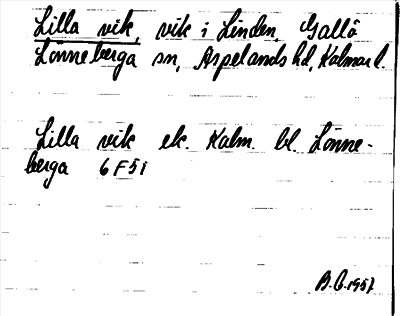 Lilla vik, vik i Linden, Gallö
Lönneberga sn, Aspelands hd, Kalmar l.
Lilla vik ek. Kalm. bl. Lönne-
berga 6 F 5 i
B.O. 1957